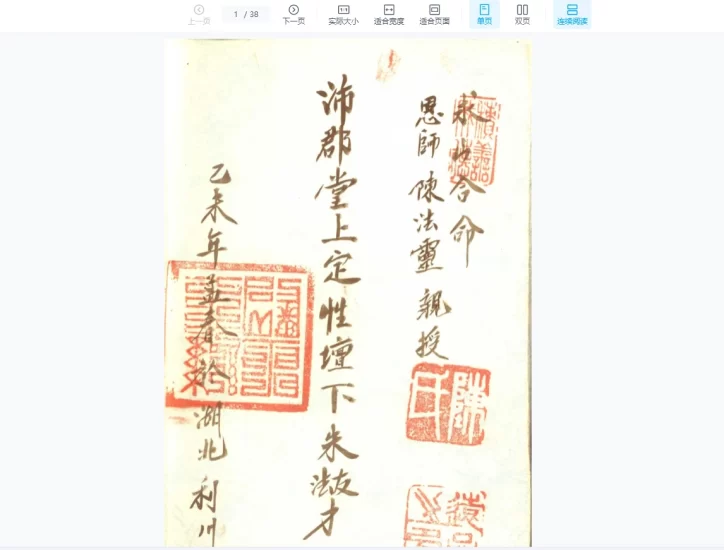 上一页
1 / 38
下一页
实际大小
适合宽度
适合页面
单页
双页
连续阅读
合命
恩師陳法靈親授
沛郡堂上定性壇下朱法友才
乙未年孟春於湖北利川